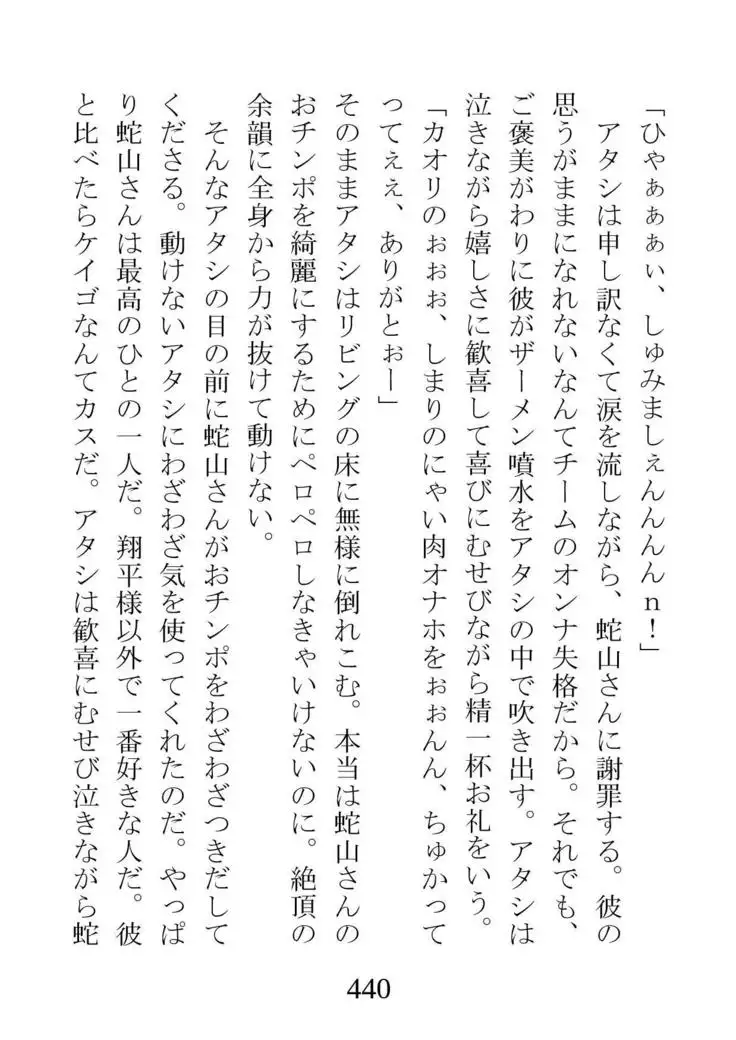 「ひゃぁぁぁぃ、しゅみましぇんんんんｎ！」
　アタシは申し訳なくて涙を流しながら、蛇山さんに謝罪する。彼の
思うがままになれないなんてチームのオンナ失格だから。それでも、
ご褒美がわりに彼がザーメン噴水をアタシの中で吹き出す。アタシは
泣きながら嬉しさに歓喜して喜びにむせびながら精一杯お礼をいう。
「カオリのぉぉぉ、しまりのにゃい肉オナホをぉぉんん、ちゅかって
ってぇぇ、ありがとぉー」
そのままアタシはリビングの床に無様に倒れこむ。本当は蛇山さんの
おチンポを綺麗にするためにペロペロしなきゃいけないのに。絶頂の
余韻に全身から力が抜けて動けない。
　そんなアタシの目の前に蛇山さんがおチンポをわざわざつきだして
くださる。動けないアタシにわざわざ気を使ってくれたのだ。やっぱ
り蛇山さんは最高のひとの一人だ。翔平様以外で一番好きな人だ。彼
と比べたらケイゴなんてカスだ。アタシは歓喜にむせび泣きながら蛇
440